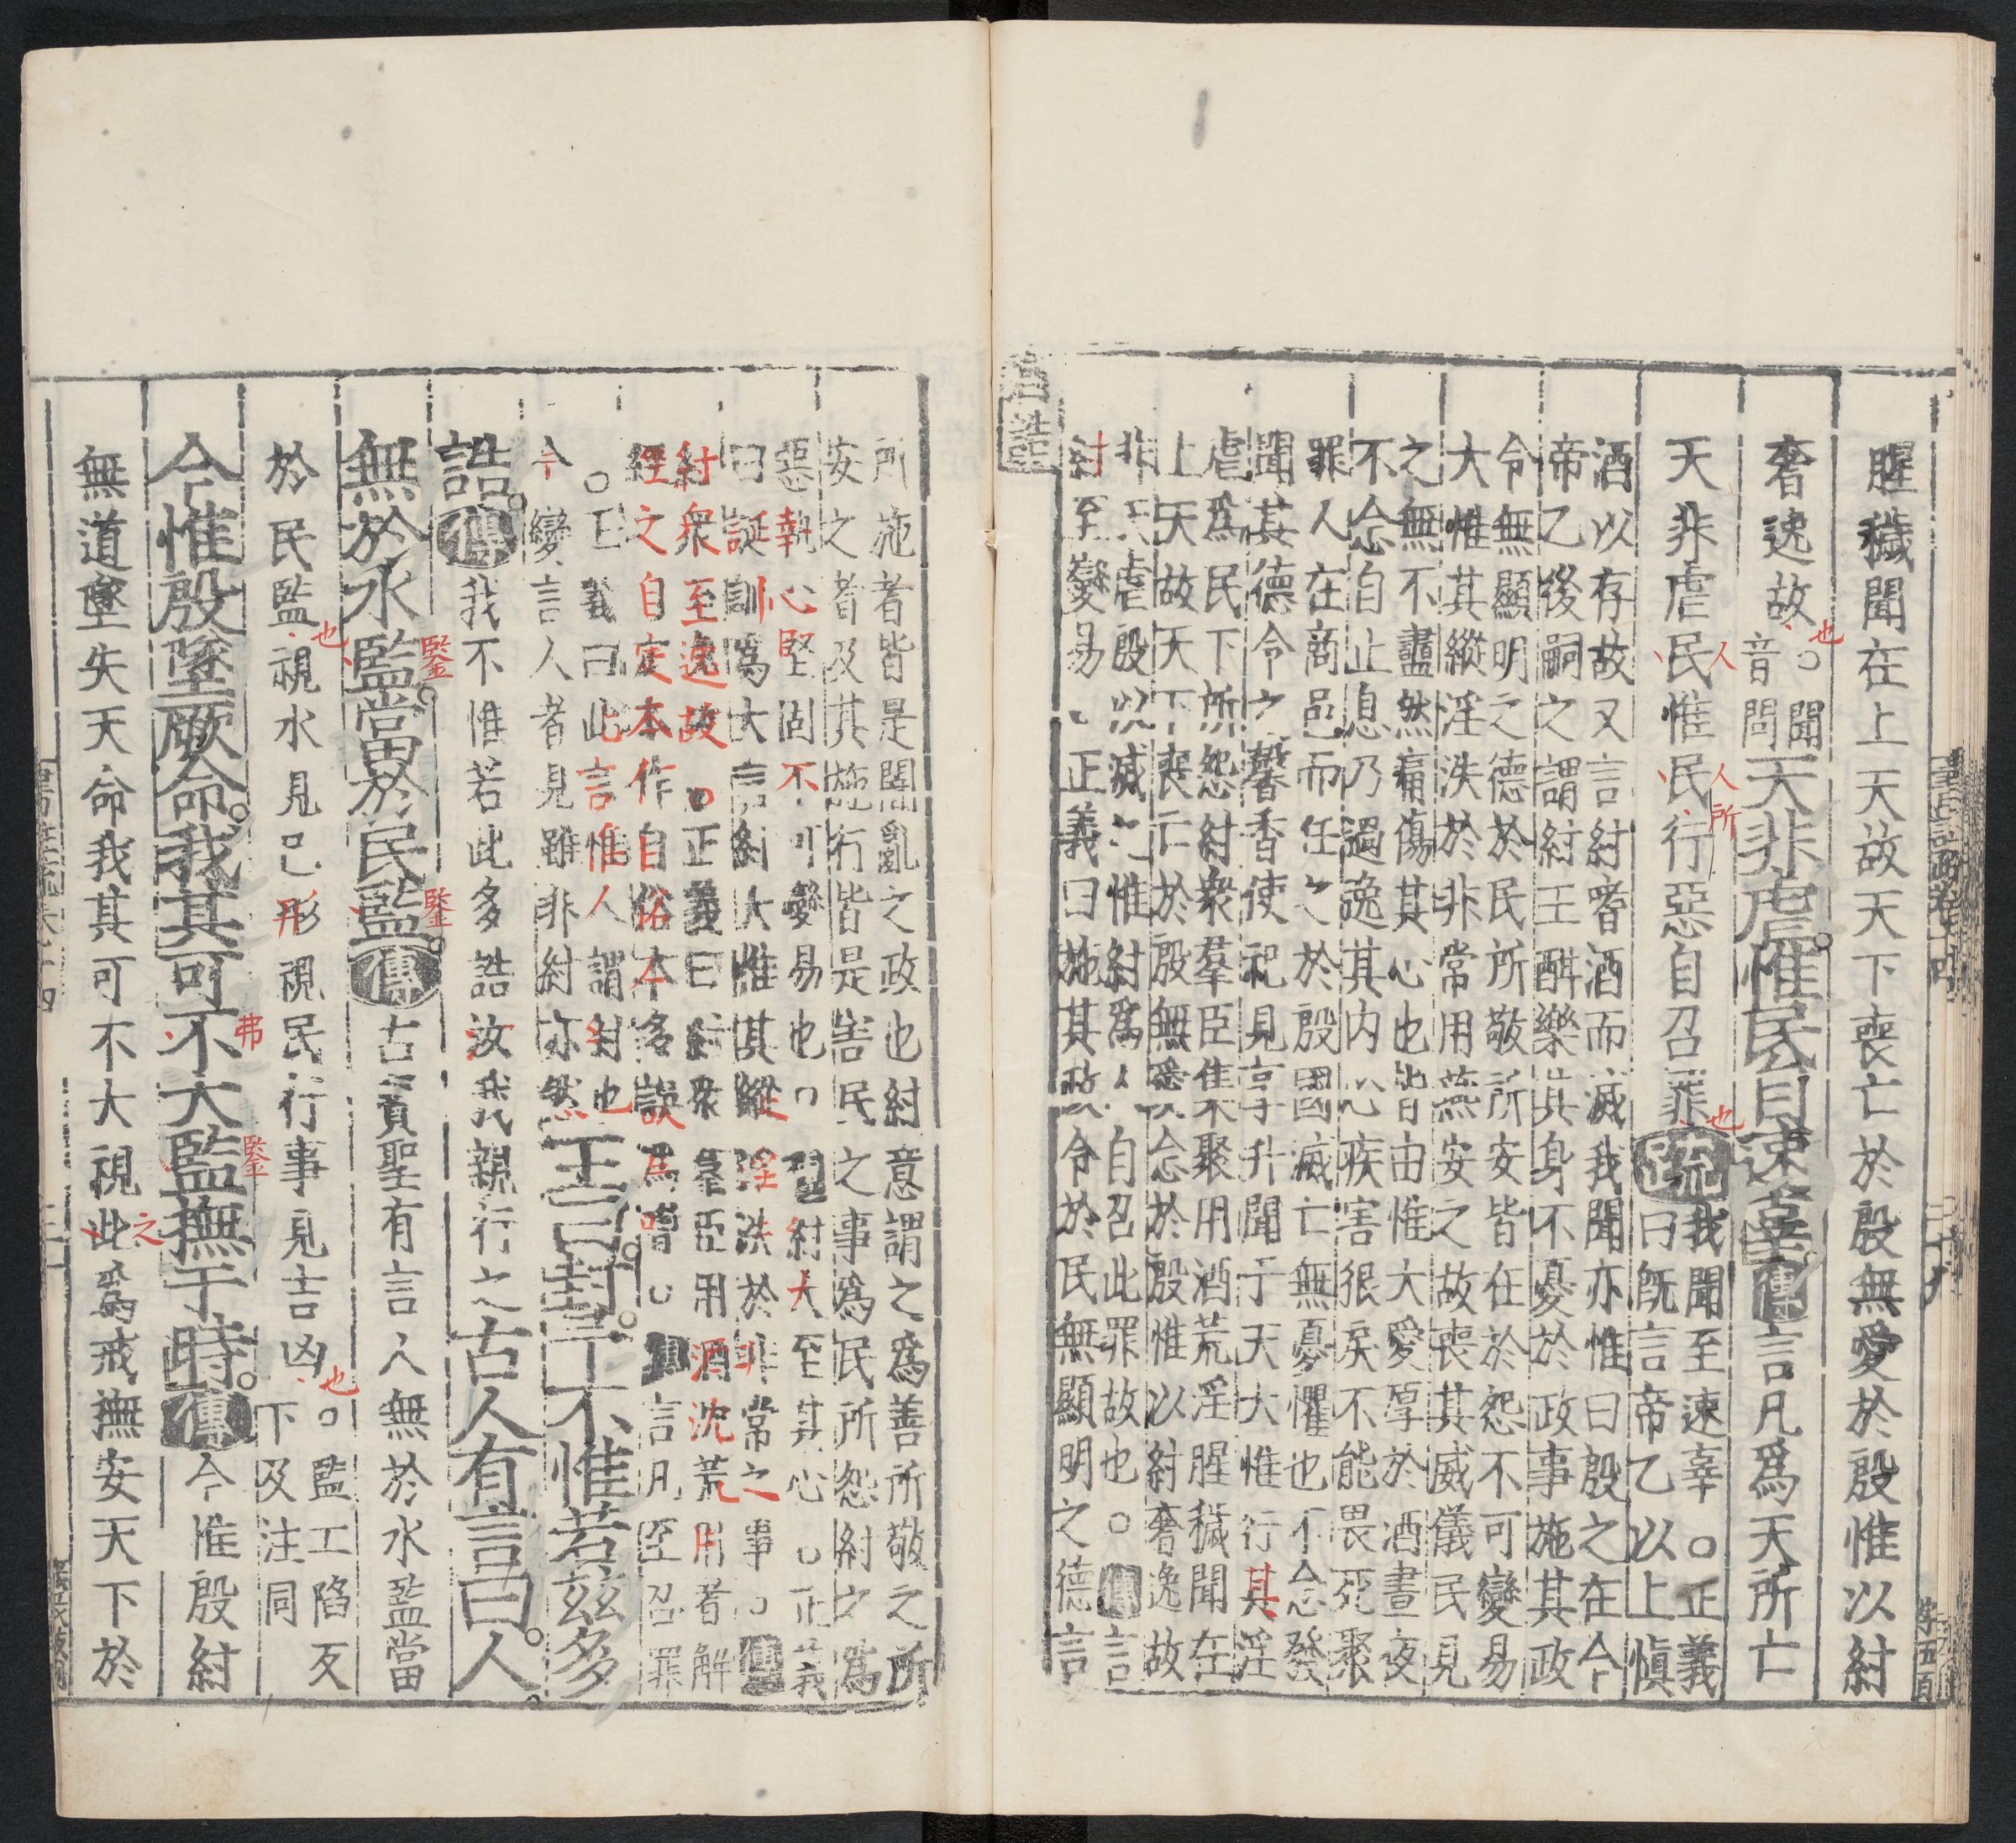 腥穢聞在上天故天下喪亡於殷無愛於殷惟以紂
奢逸故也。聞
音問
天非虐惟民自速辜傳言凡爲天所亡
天非虐民惟民行惡自召罪也疏我聞至速辜。正義
人
人所
曰既言帝乙以上愼
酒以存故又言紂嗜酒而滅我聞亦惟曰殷之在今
帝乙後嗣之謂紂王酣樂其身不憂於政事施其政
令無顯明之德於民所敬所安皆在於怨不可變易
大惟其縱淫泆於非常用燕安之故喪其威儀民見
之無不盡然痛傷其心也皆由惟大愛厚於酒晝夜
不念自止息乃過逸其内心疾害很戾不能畏死聚
罪人在商邑而任之於殷國滅亡無憂懼也不念發
聞其德令之馨香使祀見享升聞于天大惟行其淫
虐爲民下所怨紂衆羣臣集聚用酒荒淫腥穢聞在
上天故天下喪亡於殷無愛念於殷惟以紂奢逸故
非天虐殷以滅之惟紂爲人自召此罪故也。傳言
紂至變易。正義曰施其政令於民無顯明之德言
酒誥
所施者皆是闇亂之政也紂意謂之爲善所敬之所
安之者及其施行皆是害民之事爲民所怨紂之爲
惡執心堅固不可變易也。傳紂大至其心。正義
曰誕訓爲大言紂大惟其縱淫泆於非常之事。傳
紂衆至逸故。正義曰紂衆羣臣用酒沈荒用者解
經之自定本作自俗今多誤爲嗜。傳言凡至召罪
。正義曰此言惟人謂紂也
今變言人者見雖非紂亦然
王曰封予不惟若茲多
誥傳我不惟若此多誥汝我親行之古人有言曰人
無於水監當於民監傳古賢聖有言人無於水監當
鑒
鑒
於民監也視水見己形視民行事見吉凶也。監工陷反
下及注同
今惟殷墜厥命我其可不大監撫于時傳今惟殷紂
弗
鑒
無道墜失天命我其可不大視此爲戒撫安天下於
之